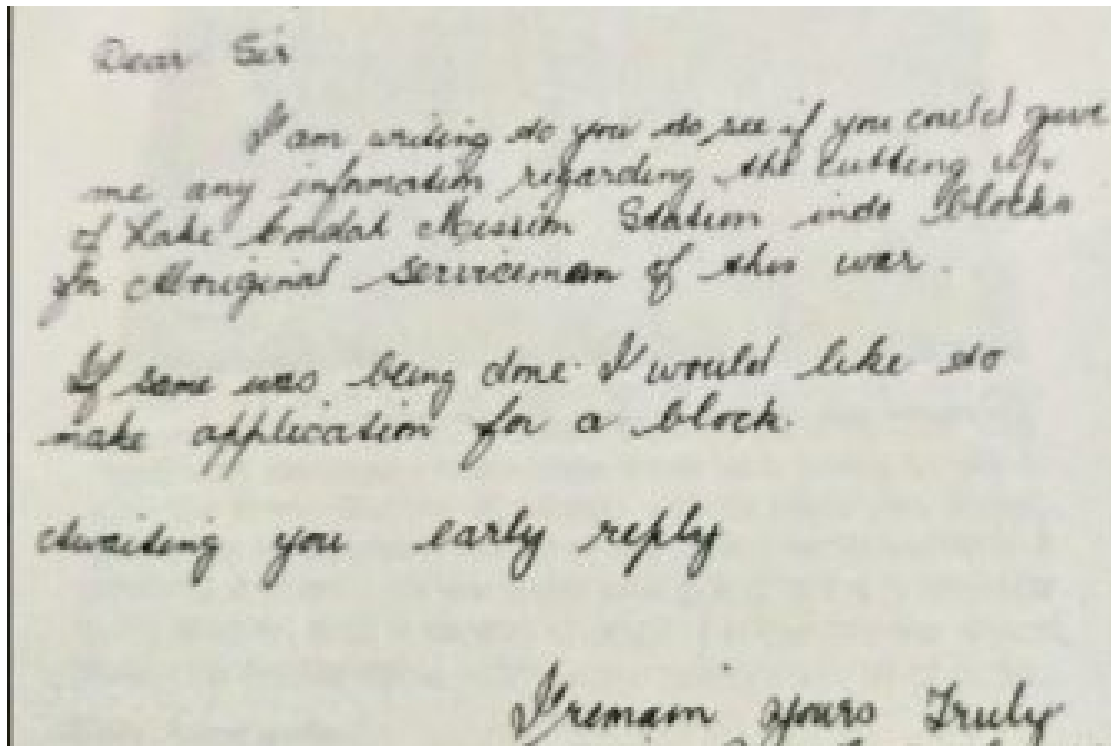 Dear Sir
I am writing to you to see if you could give
me any information regarding the cutting up
of Lake Condah Mission Station into blocks
for Aboriginal Serviceman of this war.
If same was being done I would like to
make application for a block.
Awaiting you early reply
I remain yours Truly